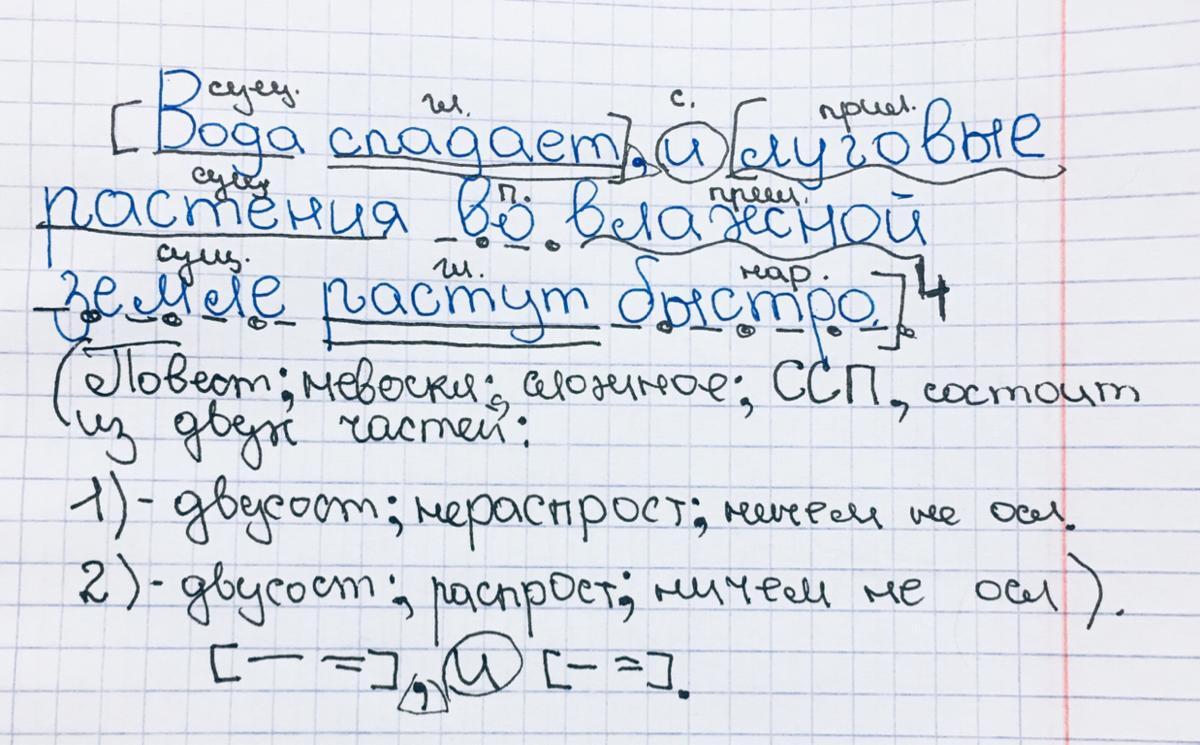 сущ. гл. с. прил.
[Вода спадает], и [луговые
сущ. п. прил.
растения во влажной
сущ. гл. нар.
земле растут быстро.]4
(Повест; невоскл; сложное; ССП, состоит
из двух частей:
1)- двусост; нераспрост; ничем не осл.
2)- двусост; распрост; ничем не осл).
[— =], и [— =].